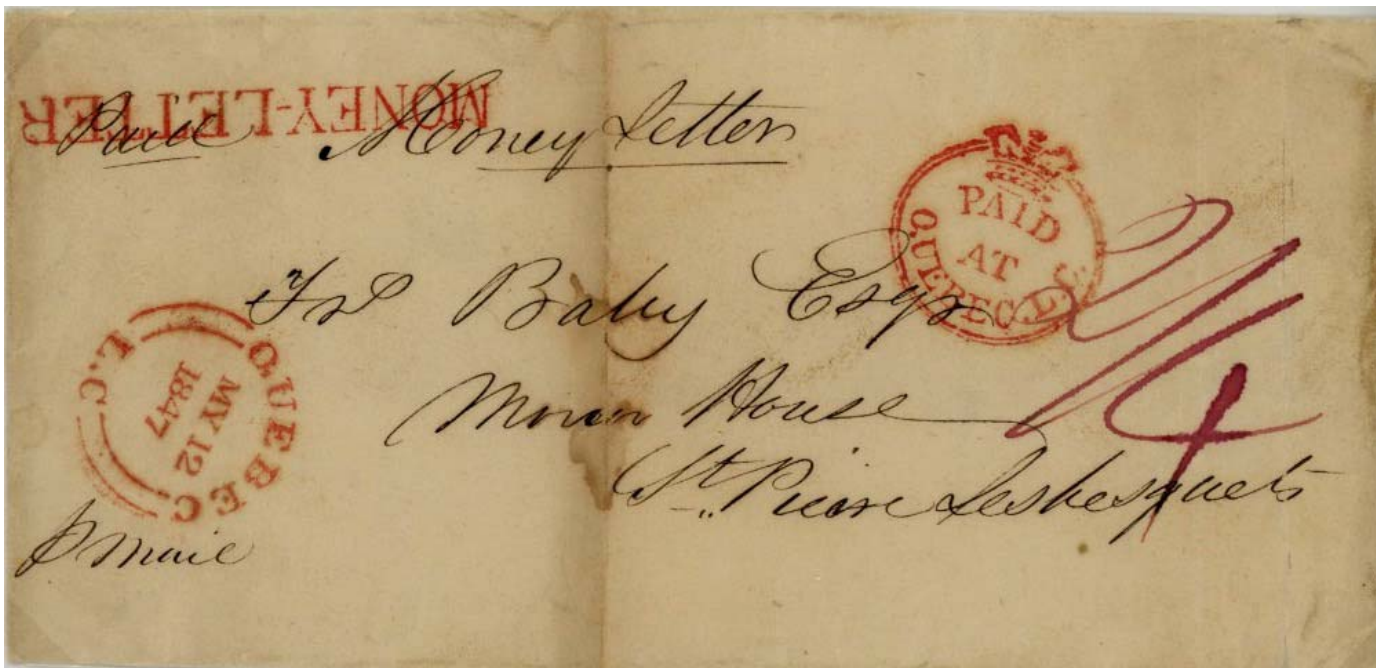 MONEY-LETTER
Paid Money Letter
PAID
AT
QUEBEC.L.C
2/4
Frs Baby Esqr
House
St. Pierre Lesbesquets
QUEBEC.
L.C
MY 12
1847
P mail